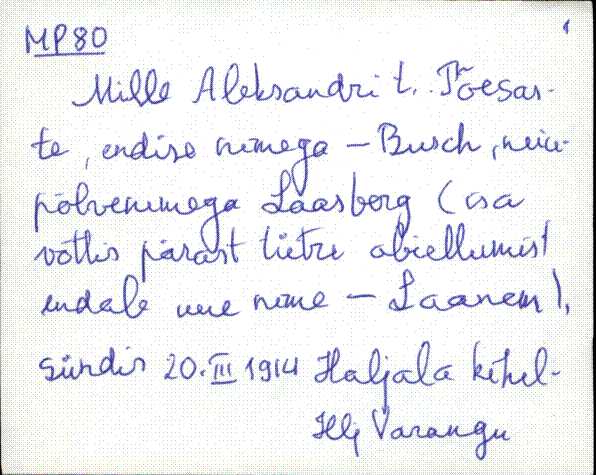 MP80 1
Mille Aleksandri t. Tõesas-
te, endise nimega - Busch, neiu-
põlvenimega Laasberg (isa
võttis pärast tütre abiellumist
endale uue nime - Laanem),
sündis 20.III 1914 Haljala kihel-
Varangu